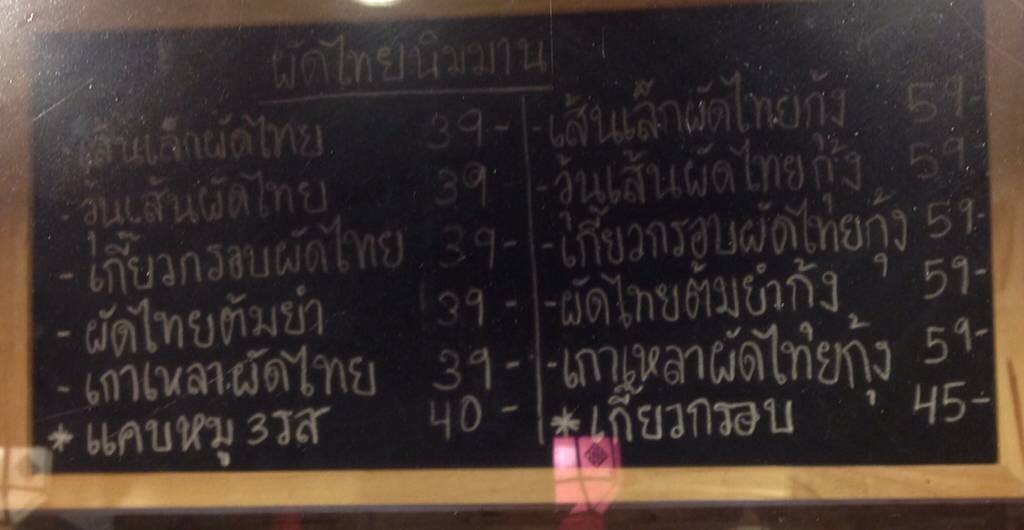 ผัดไทยนิมมาน
- เส้นเล็กผัดไทย 39-
- วุ้นเส้นผัดไทย 39
- เกี๊ยวกรอบผัดไทย 39-
- ผัดไทยต้มยำ 39-
- เกาเหลาผัดไทย 39-
* แคบหมู 3รส 40-
- เส้นเล็กผัดไทยกุ้ง 59-
- วุ้นเส้นผัดไทยกุ้ง 59-
- เกี๊ยวกรอบผัดไทยกุ้ง 59-
- ผัดไทยต้มยำกุ้ง 59-
- เกาเหลาผัดไทยกุ้ง 59-
* เกี๊ยวกรอบ 45-